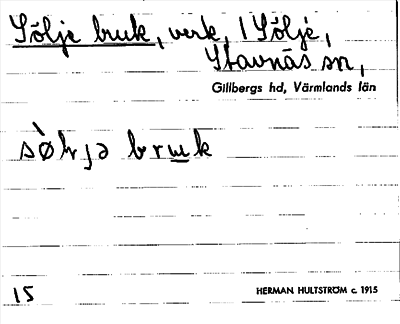 Sölje bruk, verk, 1 Sölje,
Stavnäs sn,
Gillbergs hd, Värmlands län
sø̀lja bruk
15
HERMAN HULTSTRÖM c. 1915